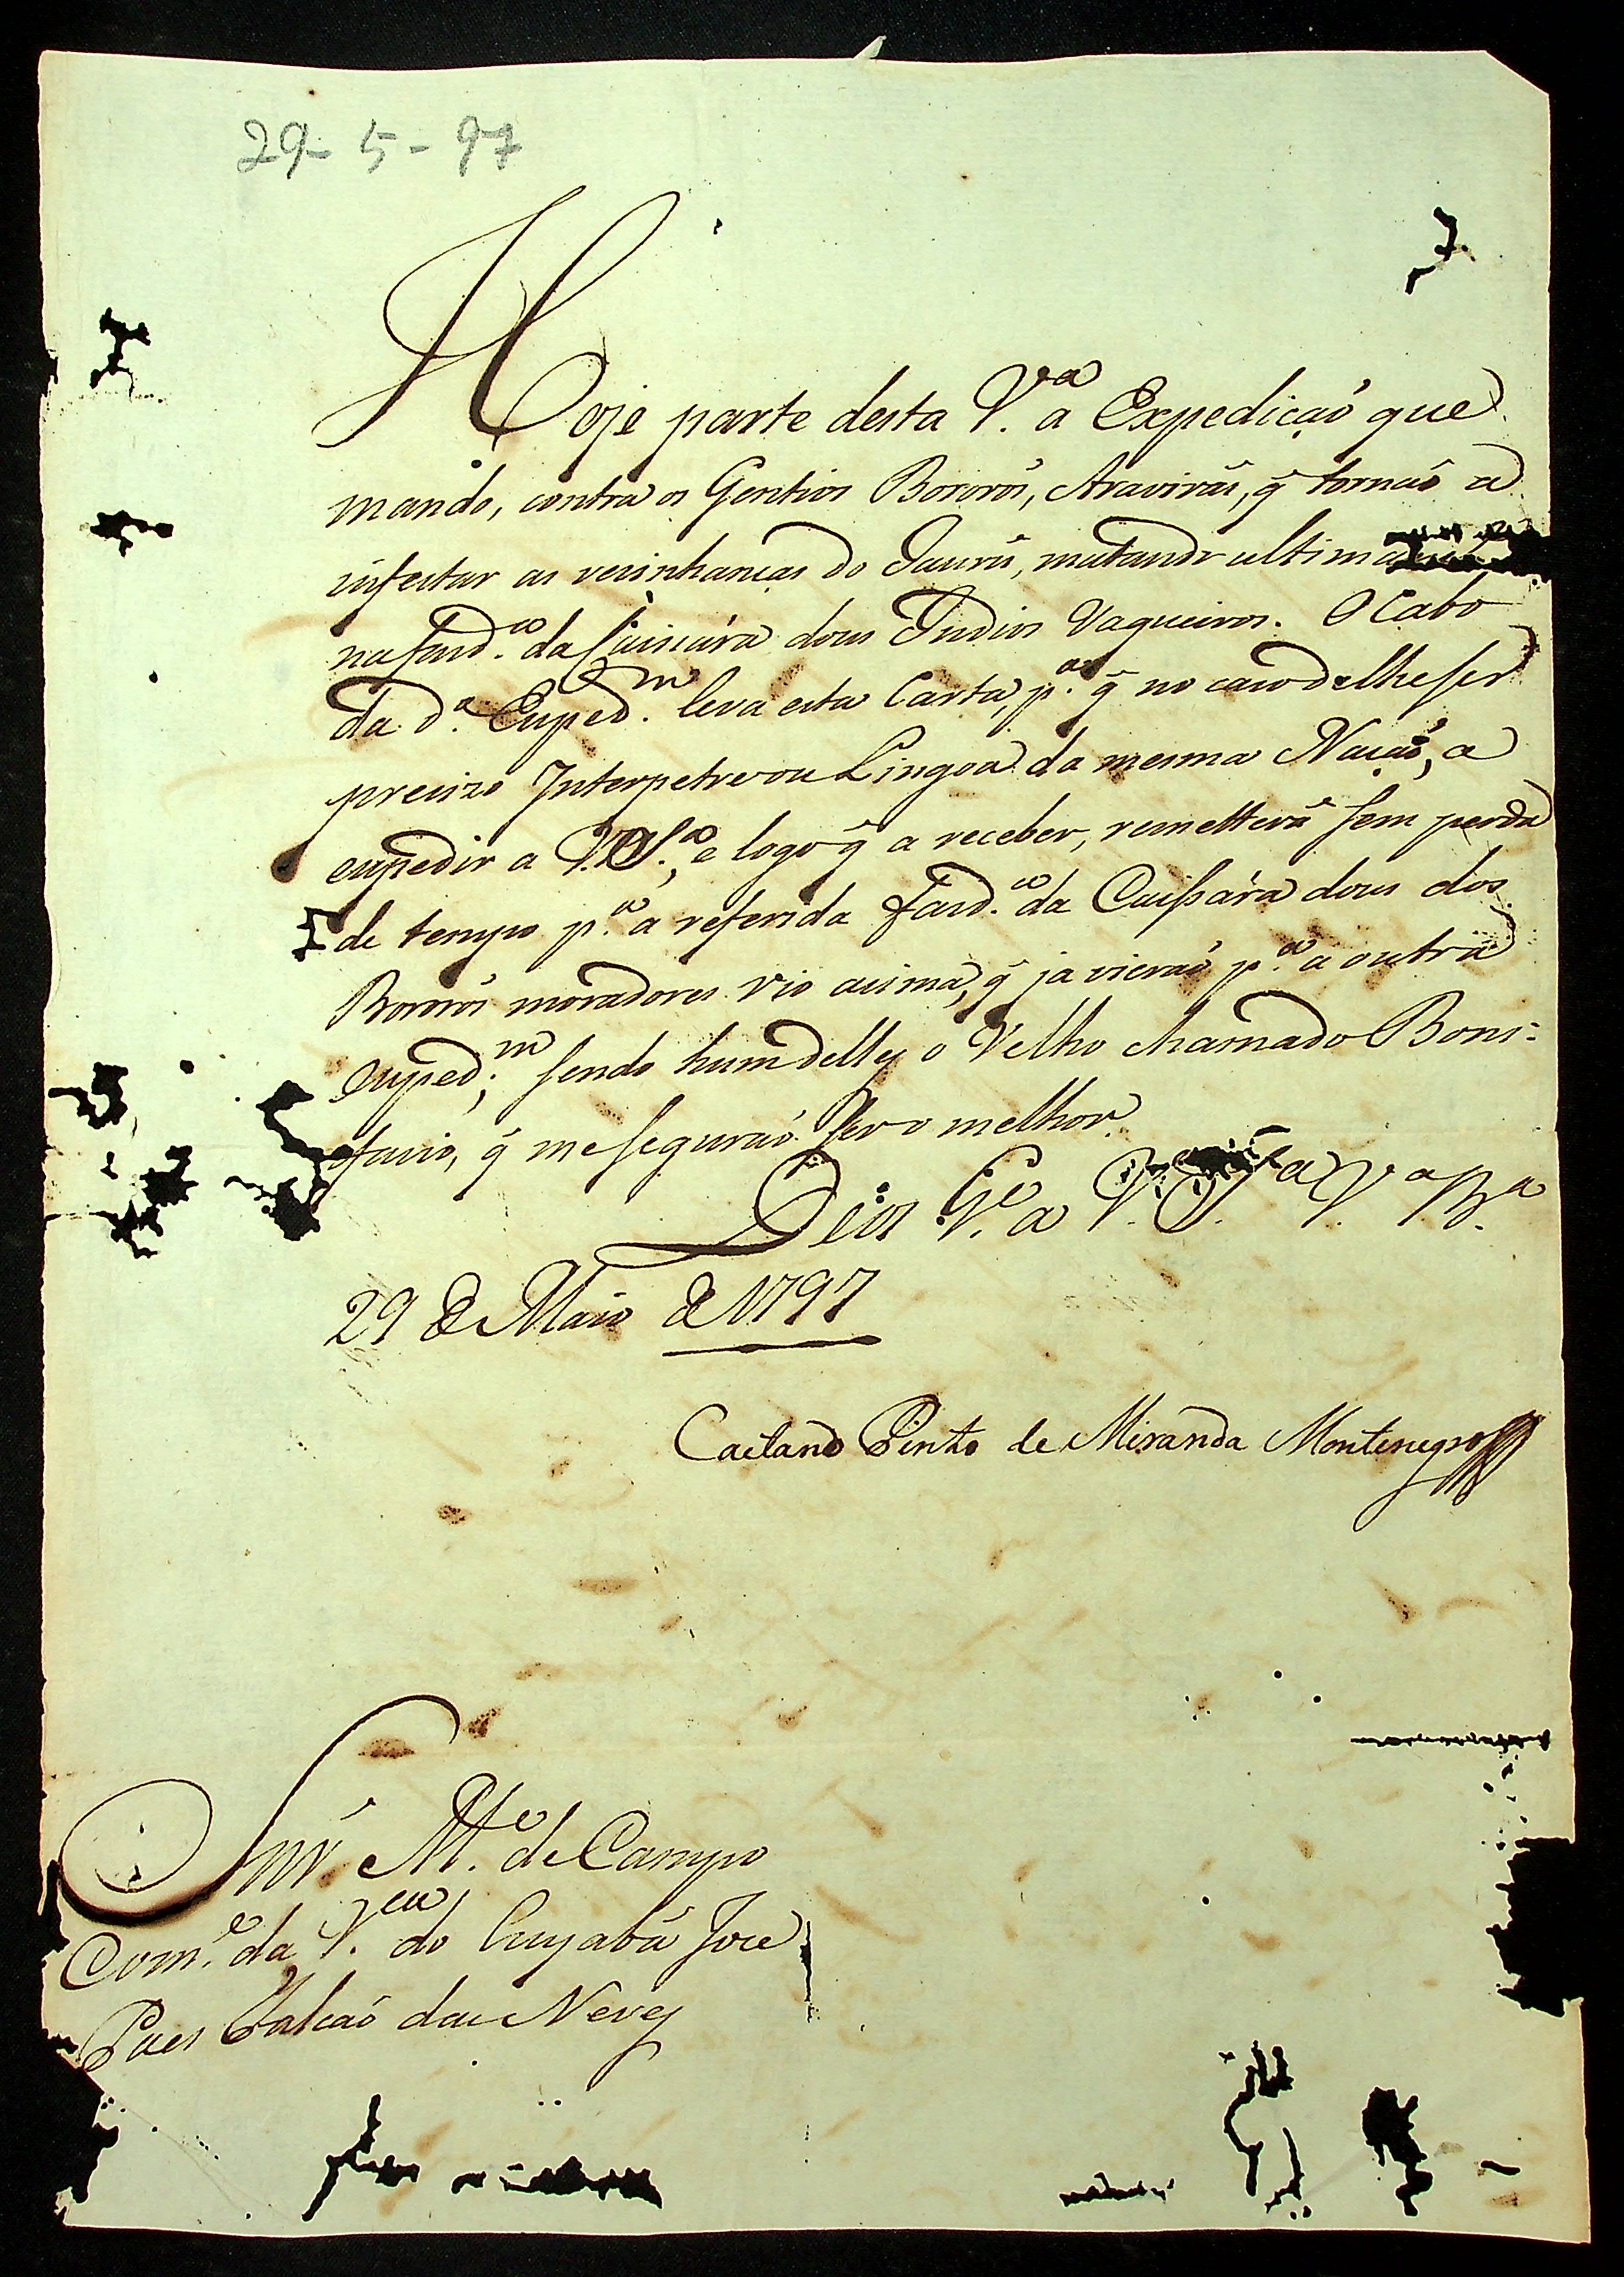 29-5-97
Hoje parte desta V.ª a Expedição que
mando, contra os Gentios Bororós, Aravirás, q̃ tornaõ a
infestar as vesinhanças do Jaurú, matando ultima
na Fazd.ª da Caissára dous Indios Vaqueiros. O Cabo
da d.ª Exped.m leva esta Carta, p.ª q̃ no caso de lhe ser
precizo Interpetre ou Lingoa da mesma Naçaõ, a
expedir a V.S.ª, e logo q̃ a receber, remetterá sem perda
de tempo p.ª a referida Fazd.ª da Caissára dous dos
Bororós moradores rio assima, q̃ ja vieraõ p.ª a outra
Exped.m; sendo hum delles o Velho chamado Boni-
facio, q̃ me seguraõ ser o melhor.
Deos G.e a V.S.ª V.ª B.ª
29 de Maio de 1797
Caetano Pinto de Miranda Montenegro
Snr. M.e de Campo
Com.e da V.ª do Cuyabá Joze
Paes Falcaõ das Neves